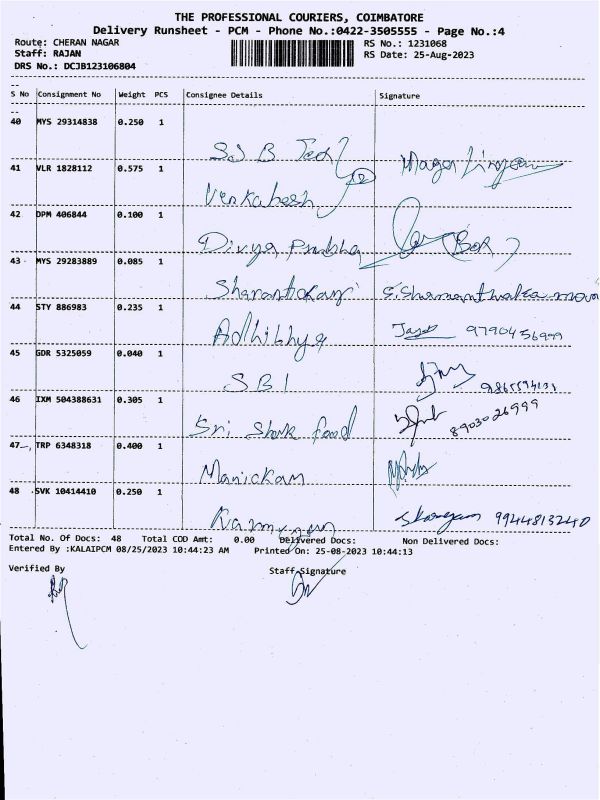 THE PROFESSIONAL COURIERS, COIMBATORE
Delivery Runsheet - PCM - Phone No.:0422-3505555 - Page No.:4
Route: CHERAN NAGAR RS No.: 1231068
Staff: RAJAN RS Date: 25-Aug-2023
DRS No.: DCJB123106804
S No Consignment No Weight PCS Consignee Details Signature
40 MYS 29314838 0.250 1
41 VLR 1828112 0.575 1
Venkahesh
42 DPM 406844 0.100 1
Divya Prabha (Box)
43 MYS 29283889 0.085 1
44 STY 886983 0.235 1
9790456999
45 GDR 5325059 0.040 1
SBI
46 IXM 504388631 0.305 1
Sri food 8903026999
47 TRP 6348318 0.400 1
Manickam
48 SVK 10414410 0.250 1
9944813240
Total No. Of Docs: 48 Total COD Amt: 0.00 Delivered Docs: Non Delivered Docs:
Entered By :KALAIPCM 08/25/2023 10:44:23 AM Printed On: 25-08-2023 10:44:13
Verified By Staff Signature